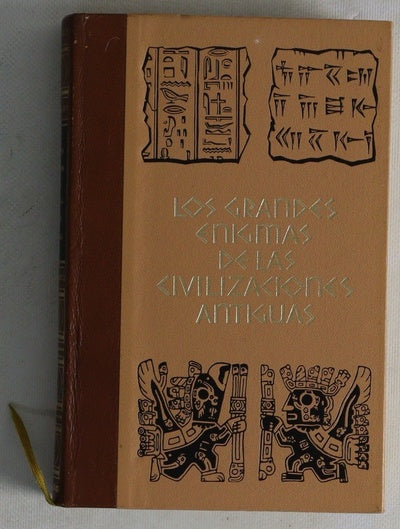 LOS GRANDES
ENIGMAS
DE LAS
CIVILIZACIONES
ANTIGUAS